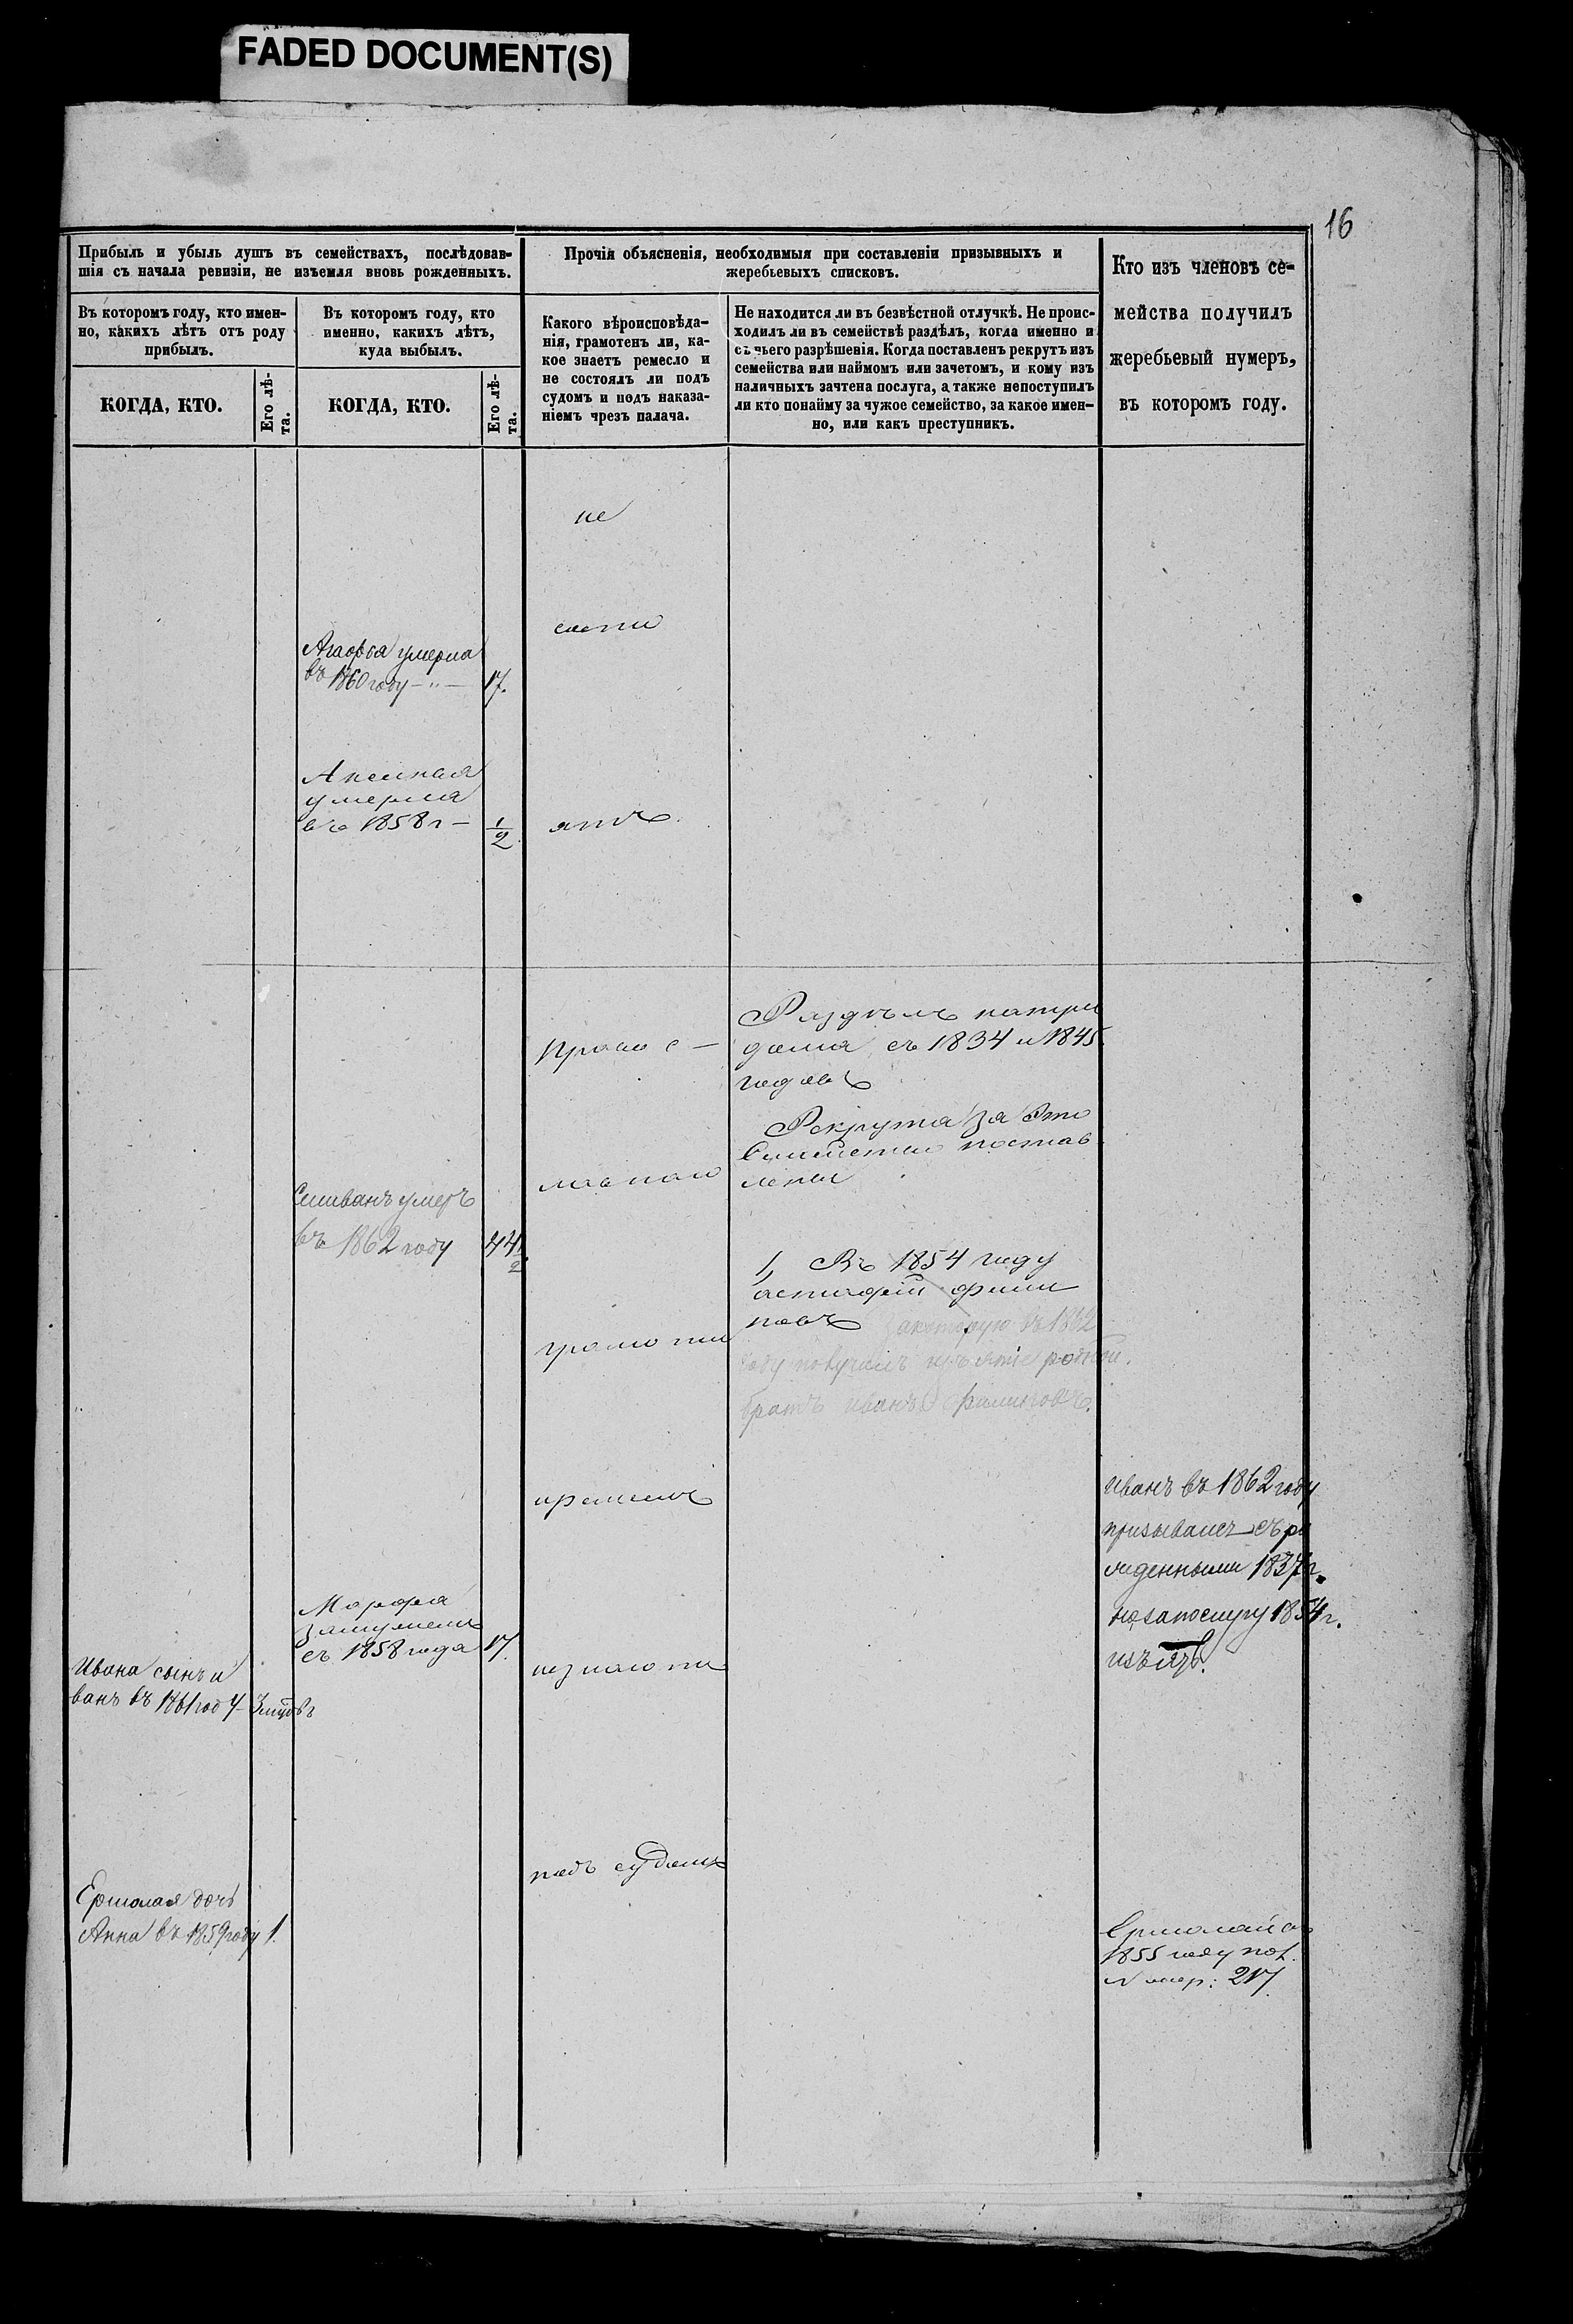 FADED DOCUMENT(S)
16
Прибыль и убыль душъ въ семействахъ, послѣдовав-
шія съ начала ревизіи, не изъемля вновь рожденныхъ.
Въ которомъ году, кто имен-
но, какихъ лѣтъ отъ роду
прибылъ.
КОГДА, КТО.
Его лѣ-
та.
Въ которомъ году, кто
именно, какихъ лѣтъ,
куда выбылъ.
КОГДА, КТО.
Его лѣ-
та.
Прочія объясненія, необходимыя при составленіи призывныхъ и
жеребьевыхъ списковъ.
Какого вѣроисповѣда-
нія, грамотенъ ли, ка-
кое знаетъ ремесло и
не состоялъ ли подъ
судомъ и подъ наказа-
ніемъ чрезъ палача.
Не находится ли въ безвѣстной отлучкѣ. Не проис-
ходилъ ли въ семействѣ раздѣлъ, когда именно и
съ чьего разрѣшенія. Когда поставленъ рекрутъ изъ
семейства или наймомъ или зачетомъ, и кому изъ
наличныхъ зачтена послуга, а также непоступилъ
ли кто понайму за чужое семейство, за какое имен-
но, или какъ преступникъ.
Кто изъ членовъ се-
мейства получилъ
жеребьевый нумеръ,
въ которомъ году.
не
умерла
въ 1860 году — " — 17.
умерла
въ 1858 г — 1/2
ятъ
Правос —
Раздѣлъ
съ 1834 и 1845
годовъ
Рекрута за это
Семейство постав
лены
лавнаго
Силиванъ умеръ
въ 1862 году 44 1/2
1, Въ 1854 году
Фили
повъ закоторую въ 1862
году получилъ изъятіе родной
братъ Иванъ Филиповъ.
грамоты
иремесла
Иванъ въ 1862 году
призывался съ ро
жденными 1837 г.
но запослугу 1854 г.
изъятъ.
Марфа
замужемъ
съ 1858 года 17.
незнаютъ
Ивана сынъ И
ванъ въ 1861 году
подъ судомъ
Ермолая дочь
Анна въ 1859 году 1.
Ермолай въ
1855 году пол.
Нумер: 217.